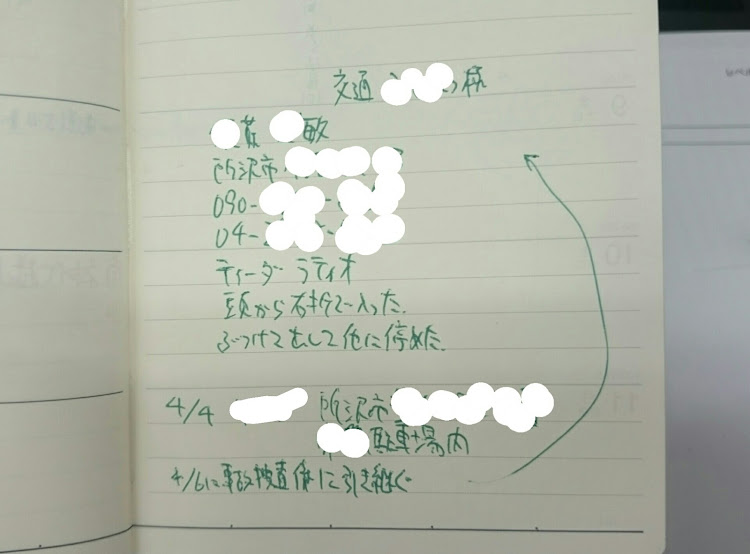 交通 様
敏
所沢市
090-
04-
ティーダ ラティオ
頭から右キタで入った.
ぶつけて出して他に停めた.
4/4 所沢市
駐車場内
4/6に事故捜査係に引き継ぐ